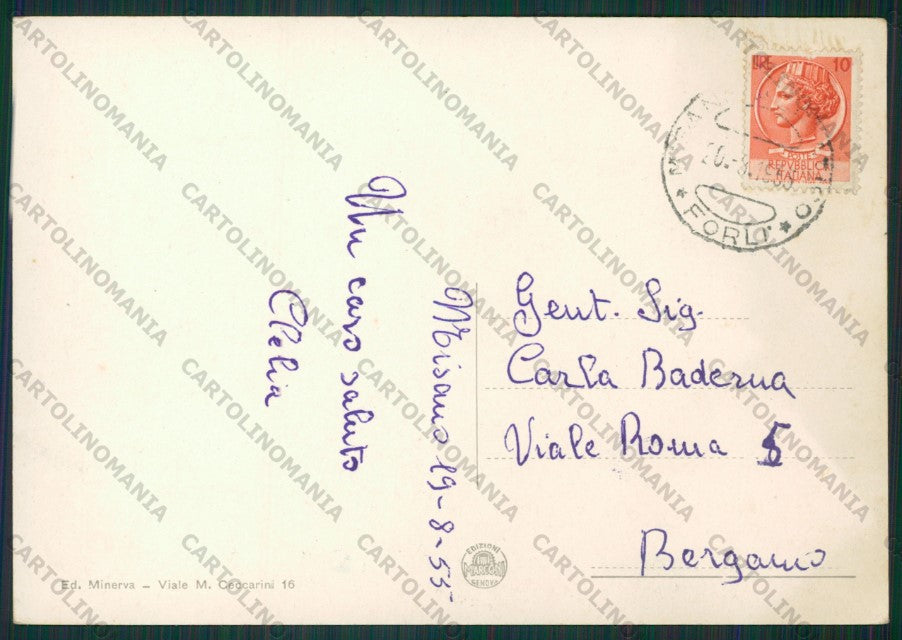 LIRE 10
POSTE
REPVBBLICA
ITALIANA
20.-8.1955
FORLI'
Misano 19-8-55
Un caro saluto
Clelia
Gent. Sig.
Carla Baderna
Viale Roma 5
Bergamo
Ed. Minerva - Viale M. Ceccarini 16
EDIZIONI
MARCONI
GENOVA
CARTOLINOMANIA